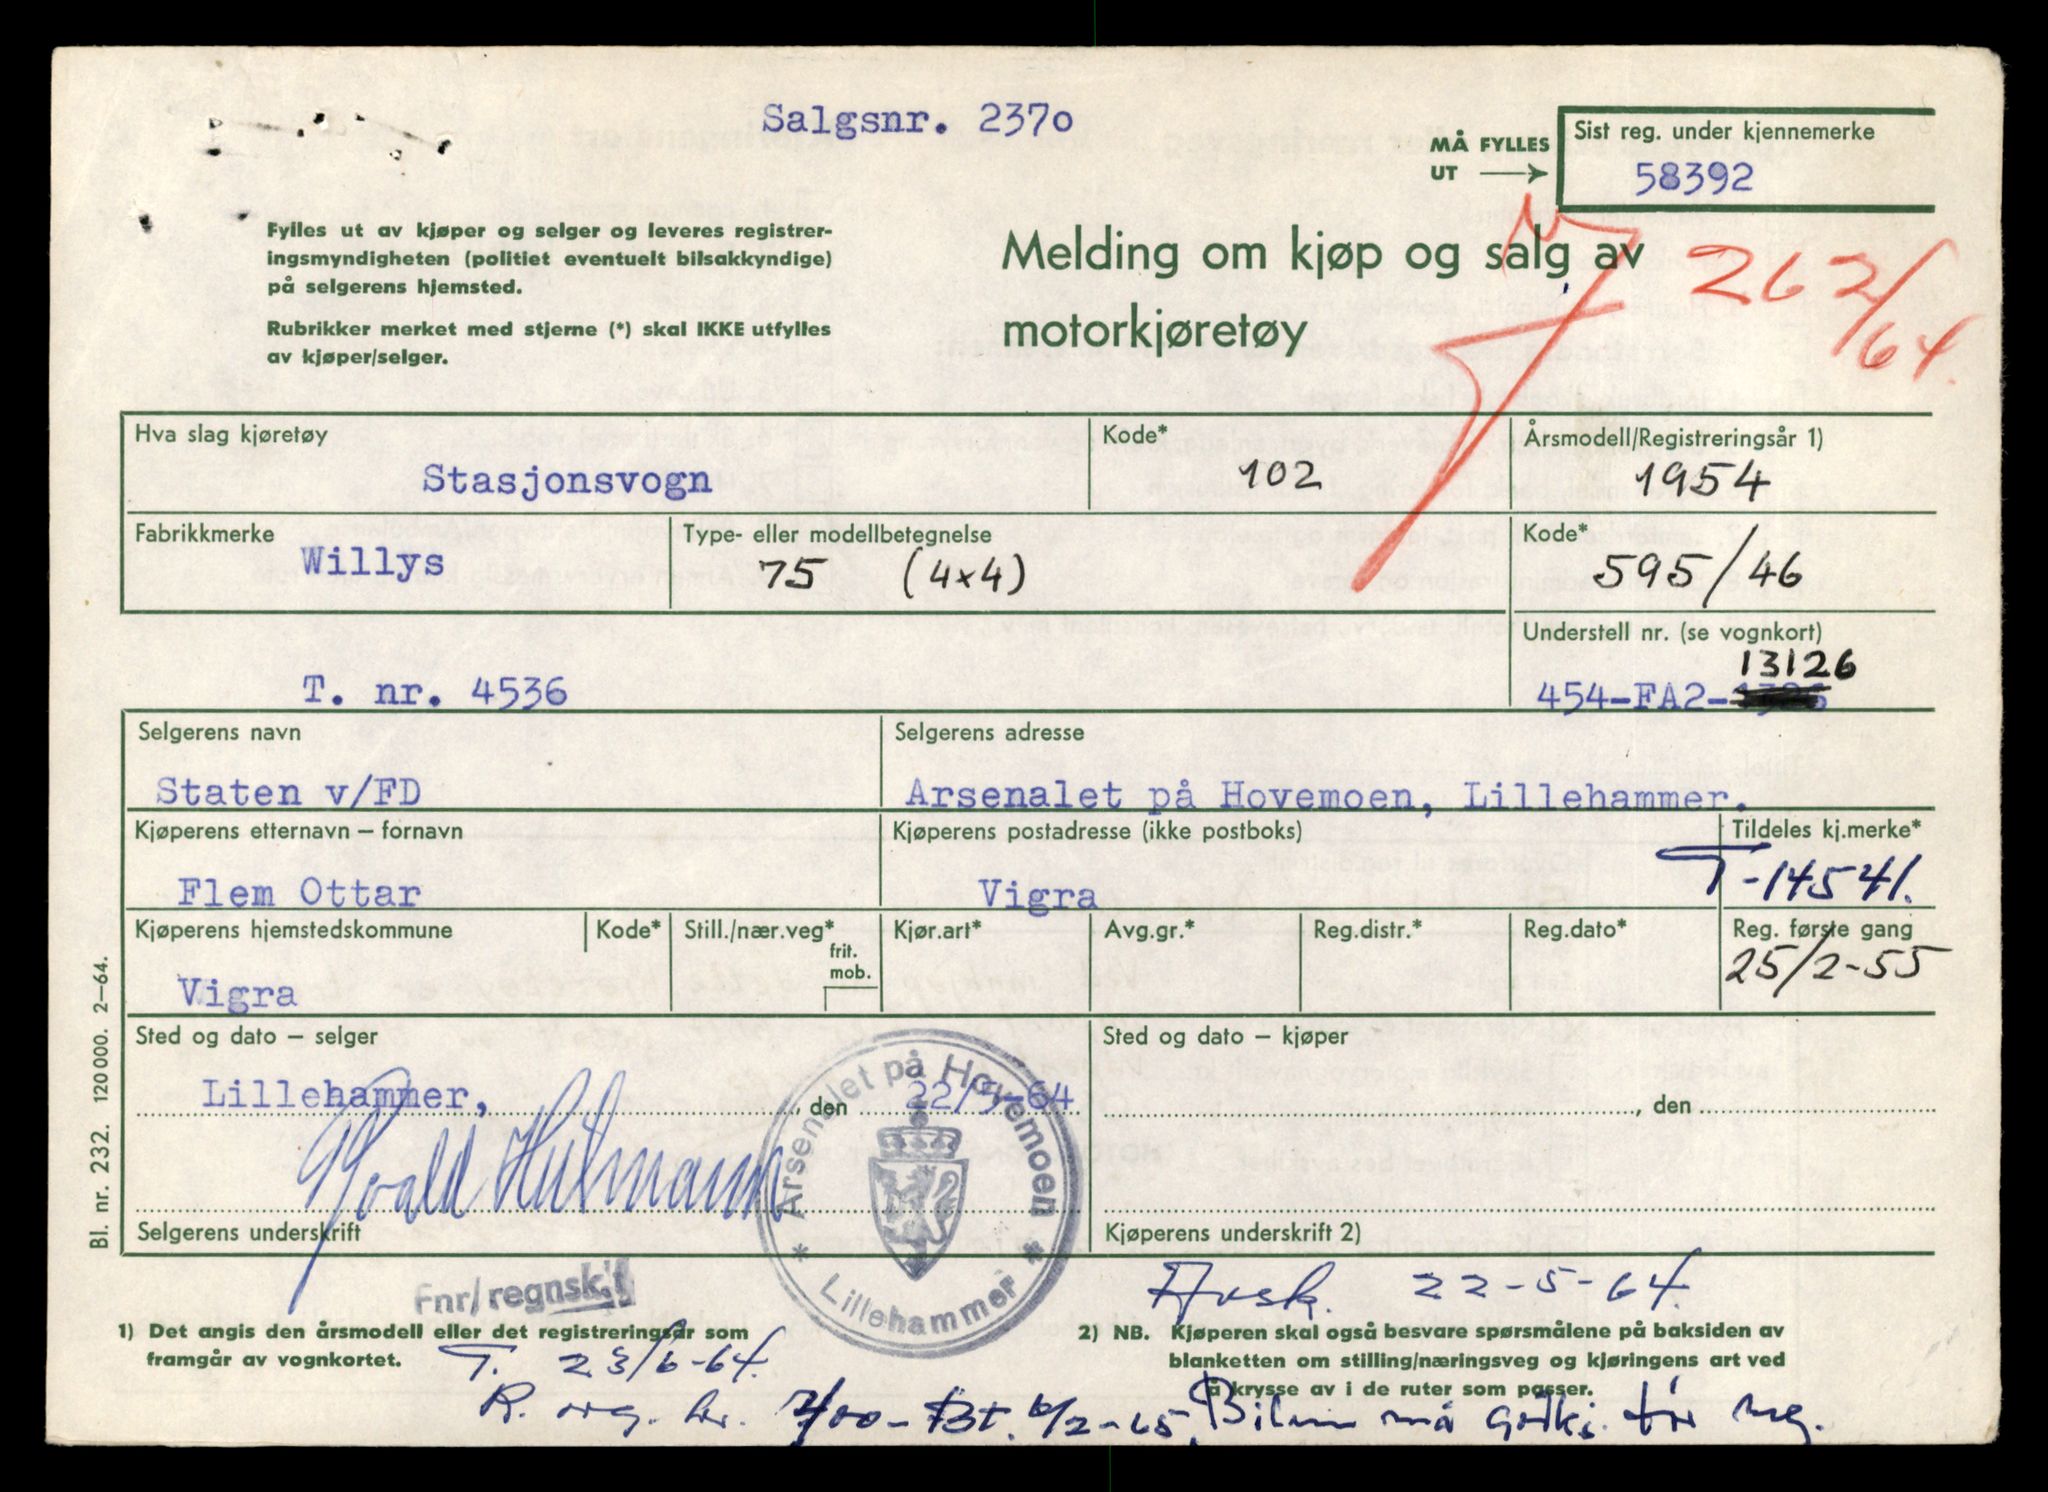 Salgsnr. 2370
MÅ FYLLES
UT
Sist reg. under kjennemerke
58392
Fylles ut av kjøper og selger og leveres registrer-
ingsmyndigheten (politiet eventuelt bilsakkyndige)
på selgerens hjemsted.
Rubrikker merket med stjerne (*) skal IKKE utfylles
av kjøper/selger.
Melding om kjøp og salg av
motorkjøretøy
262/64.
Hva slag kjøretøy
Stasjonsvogn
Kode*
102
Årsmodell/Registreringsår 1)
1954
Fabrikkmerke
Willys
Type- eller modellbetegnelse
75 (4x4)
Kode*
595/46
Understell nr. (se vognkort)
13126
454-FA2-
T. nr. 4536
Selgerens navn
Staten v/FD
Selgerens adresse
Arsenalet på Hovemoen, Lillehammer.
Kjøperens etternavn – fornavn
Flem Ottar
Kjøperens postadresse (ikke postboks)
Vigra
Tildeles kj.merke*
T-14541.
Kjøperens hjemstedskommune
Vigra
Kode*
Still./nær.veg*
frit.
mob.
Kjør.art*
Avg.gr.*
Reg.distr.*
Reg.dato*
Reg. første gang
25/2-55
Sted og dato – selger
Lillehammer, , den 22/5-64
Sted og dato – kjøper
, den
Arsenalet på Hovemoen
* Lillehammer *
Selgerens underskrift
Kjøperens underskrift 2)
Fnr/regnsk.
Avsk. 22-5-64.
1) Det angis den årsmodell eller det registreringsår som
framgår av vognkortet.
T. 23/6-64.
2) NB. Kjøperen skal også besvare spørsmålene på baksiden av
blanketten om stilling/næringsveg og kjøringens art ved
å krysse av i de ruter som passer.
Bilen må godkj. før reg.
Bl. nr. 232. 120000. 2–64.